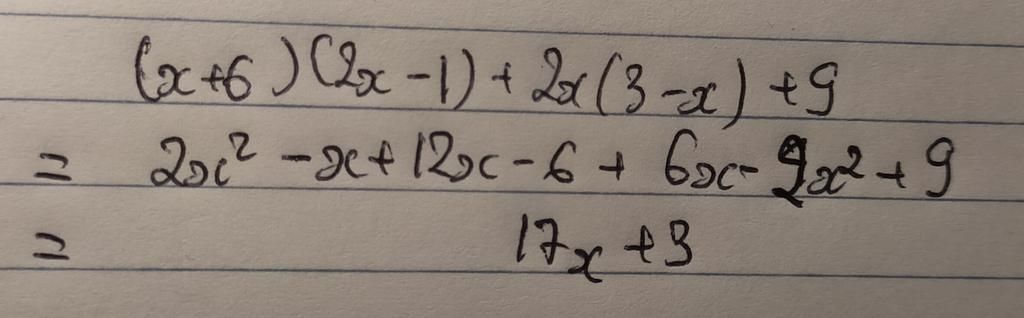 (x+6)(2x-1)+2x(3-x)+9
= 2x² -x+12x-6+ 6x- 2x²+9
= 17x+3